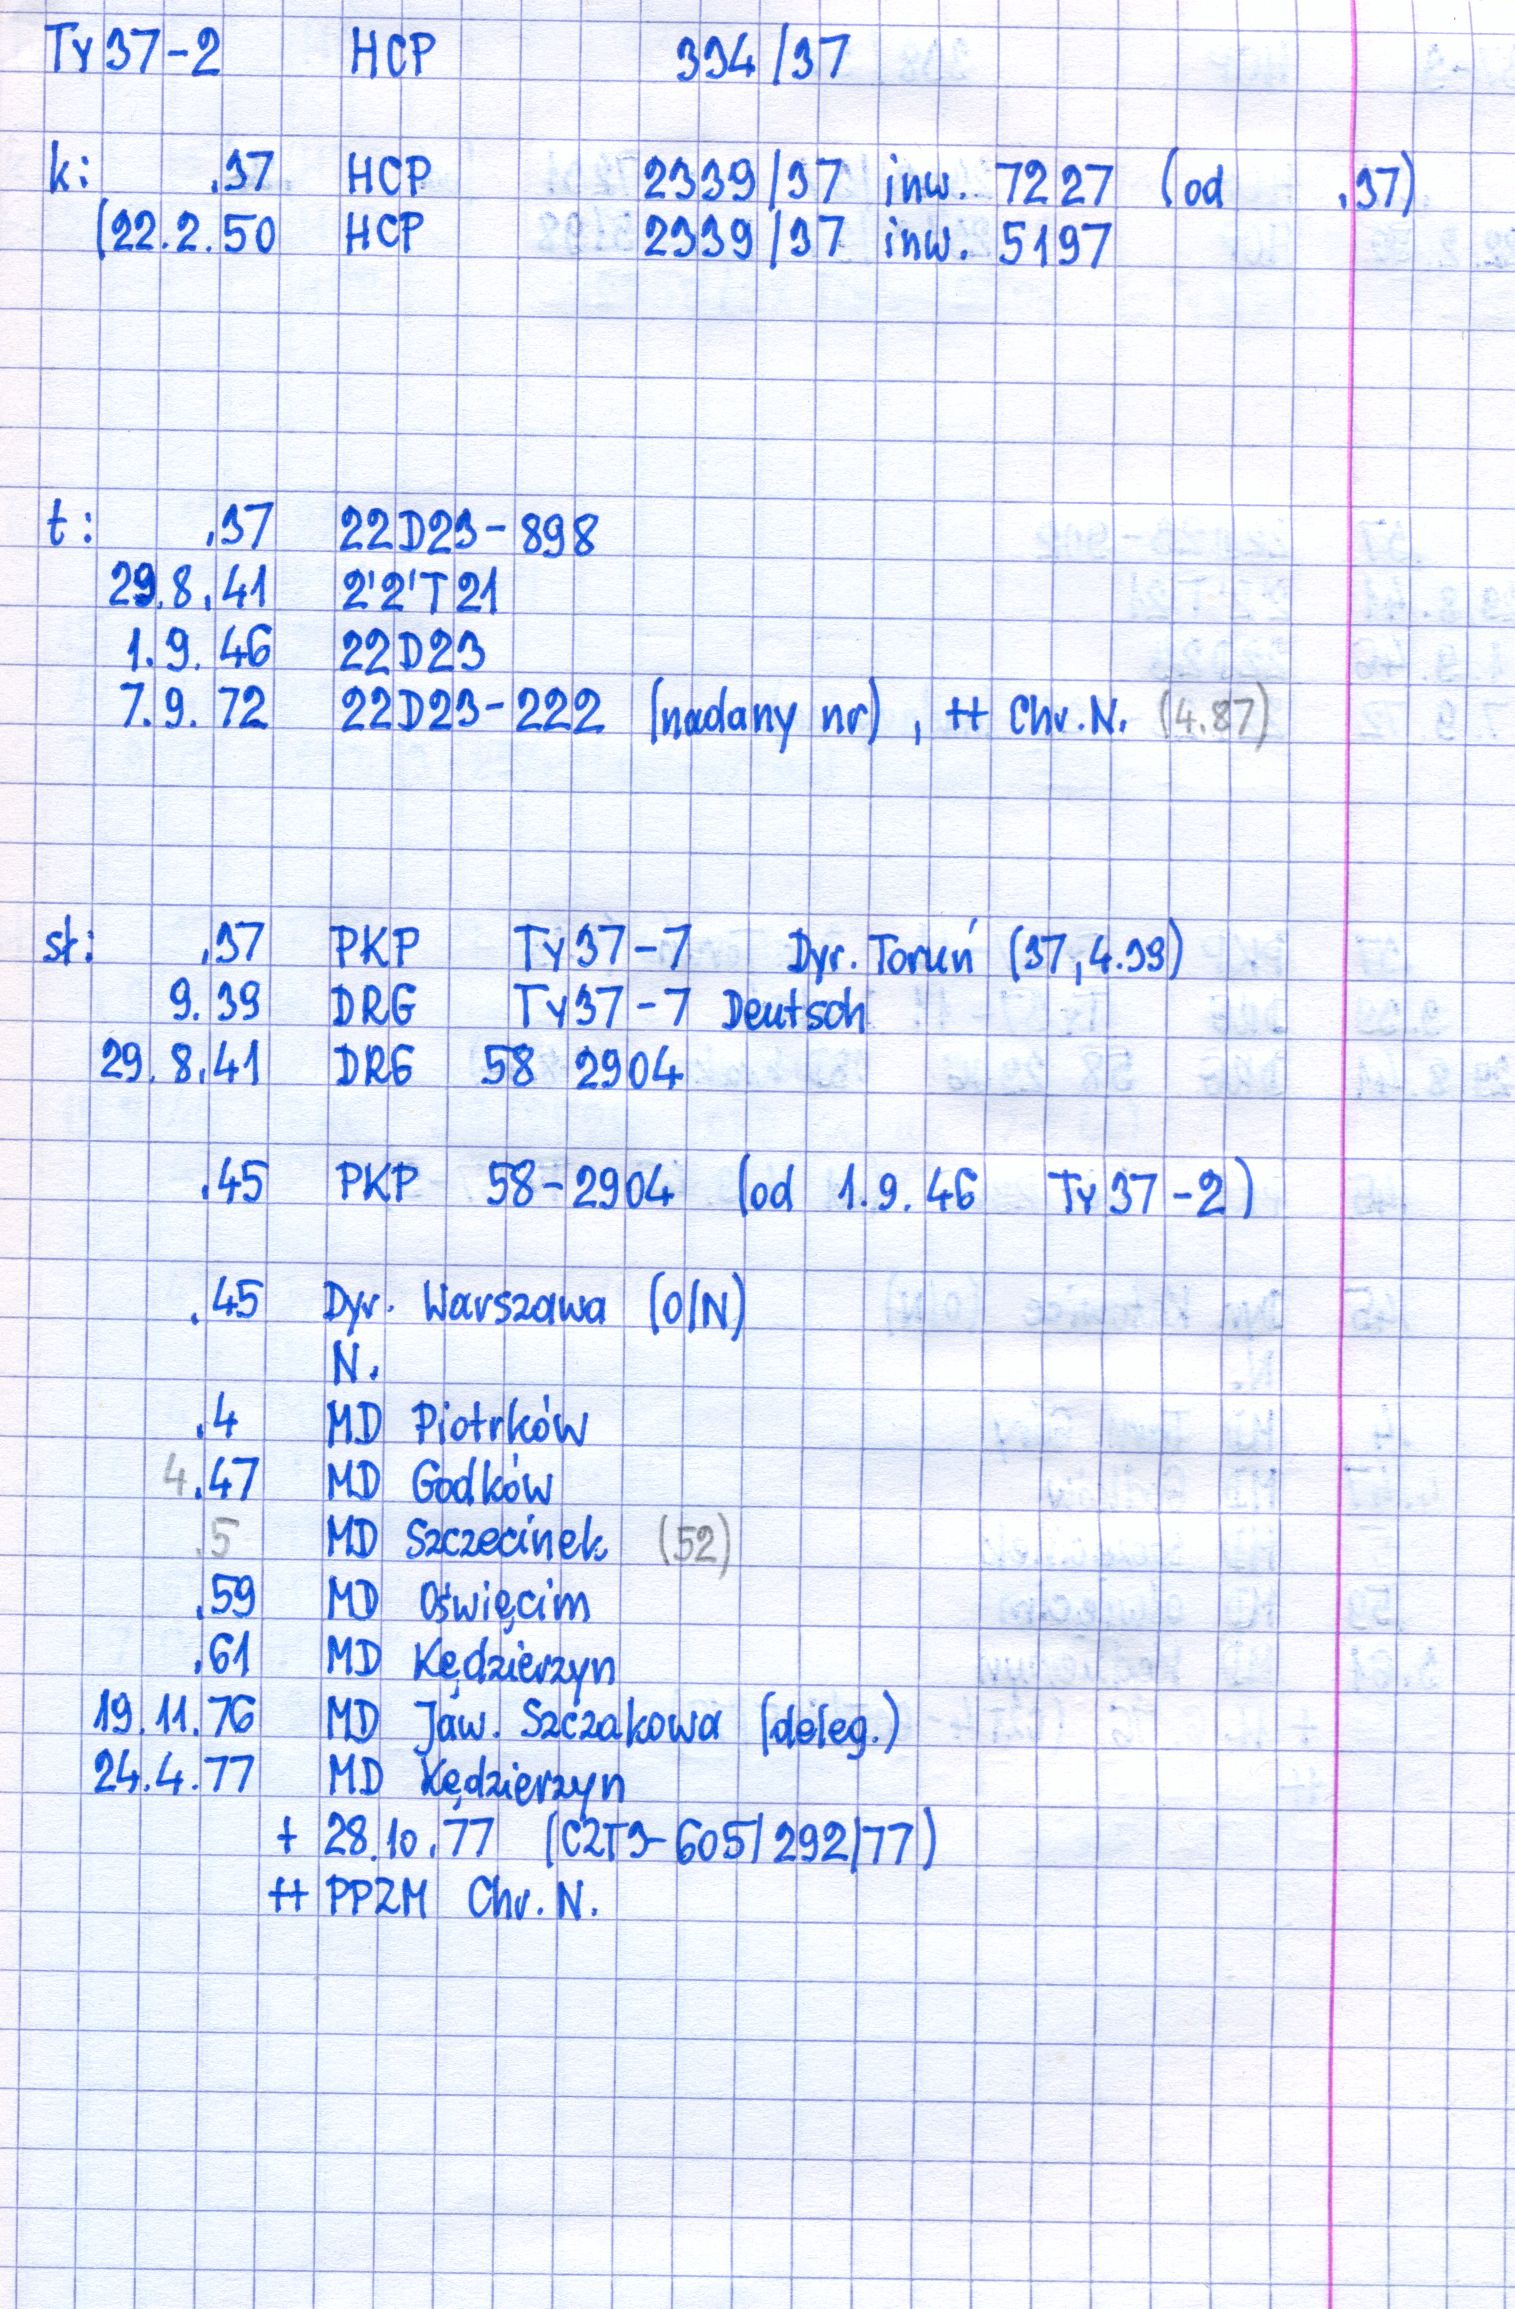 Ty37-2 HCP 334/37
k: .37 HCP 2339/37 inw. 7227 (od .37)
(22.2.50 HCP 2339/37 inw. 5197
t: .37 22D23-898
29.8.41 2'2'T21
1.9.46 22D23
7.9.72 22D23-222 (nadany nr), ++ Chr.N. (4.87)
st: .37 PKP Ty37-7 Dyr. Toruń (37,4.39)
9.39 DRG Ty37-7 Deutsch
29.8.41 DRG 58 2904
.45 PKP 58-2904 (od 1.9.46 Ty37-2)
.45 Dyr. Warszawa (O/N)
N.
.4 MD Piotrków
4.47 MD Godków
.5 MD Szczecinek (52)
.59 MD Oświęcim
.61 MD Kędzierzyn
19.11.76 MD Jaw. Szczakowa (deleg.)
24.4.77 MD Kędzierzyn
+ 28.10.77 (CZT3-605/292/77)
++ PPZM Chr. N.